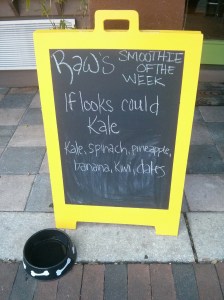 Raw's SMOOTHIE
OF THE
WEEK
If looks could
Kale
Kale, spinach, pineapple,
banana, Kiwi, dates